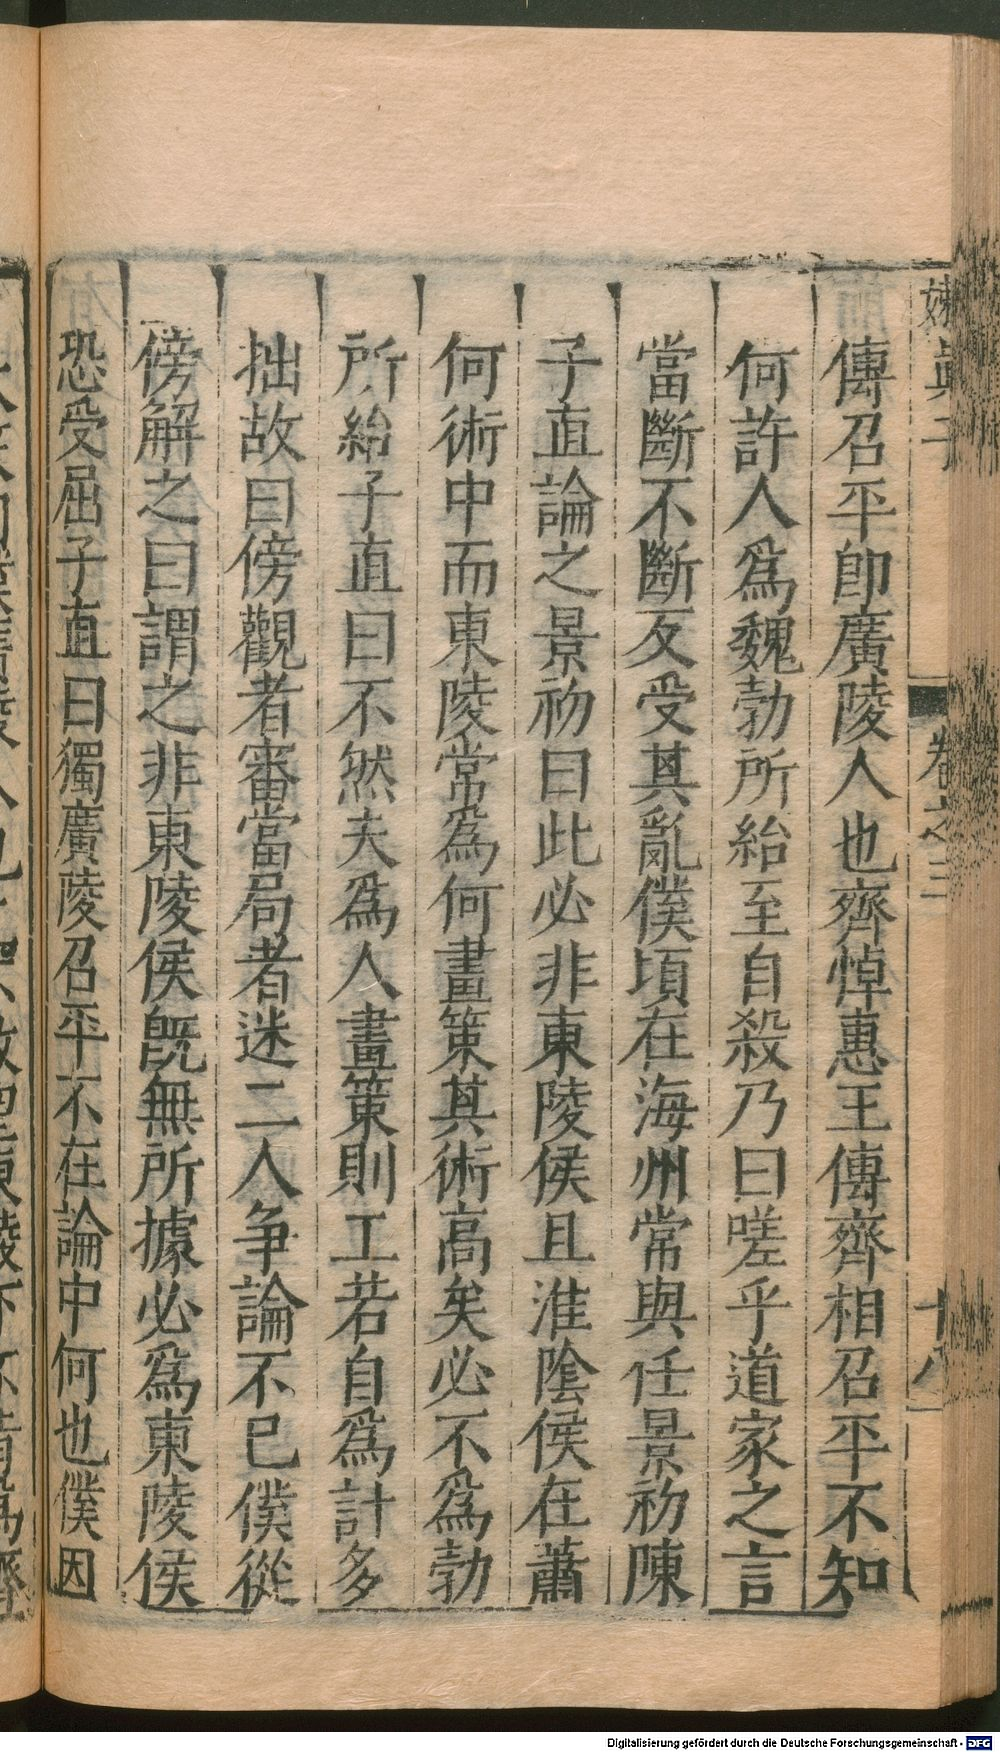 嬾眞子
卷之三
十八
傳召平卽廣陵人也齊悼惠王傳齊相召平不知
何許人爲魏勃所紿至自殺乃曰嗟乎道家之言
當斷不斷反受其亂僕頃在海州常與任景初陳
子直論之景初曰此必非東陵侯且淮陰侯在蕭
何術中而東陵常爲何畫策其術高矣必不爲勃
所紿子直曰不然夫爲人畫策則工若自爲計多
拙故曰傍觀者審當局者迷二人爭論不已僕從
傍解之曰謂之非東陵侯旣無所據必爲東陵侯
恐受屈子直曰獨廣陵召平不在論中何也僕因
Digitalisierung gefördert durch die Deutsche Forschungsgemeinschaft - DFG